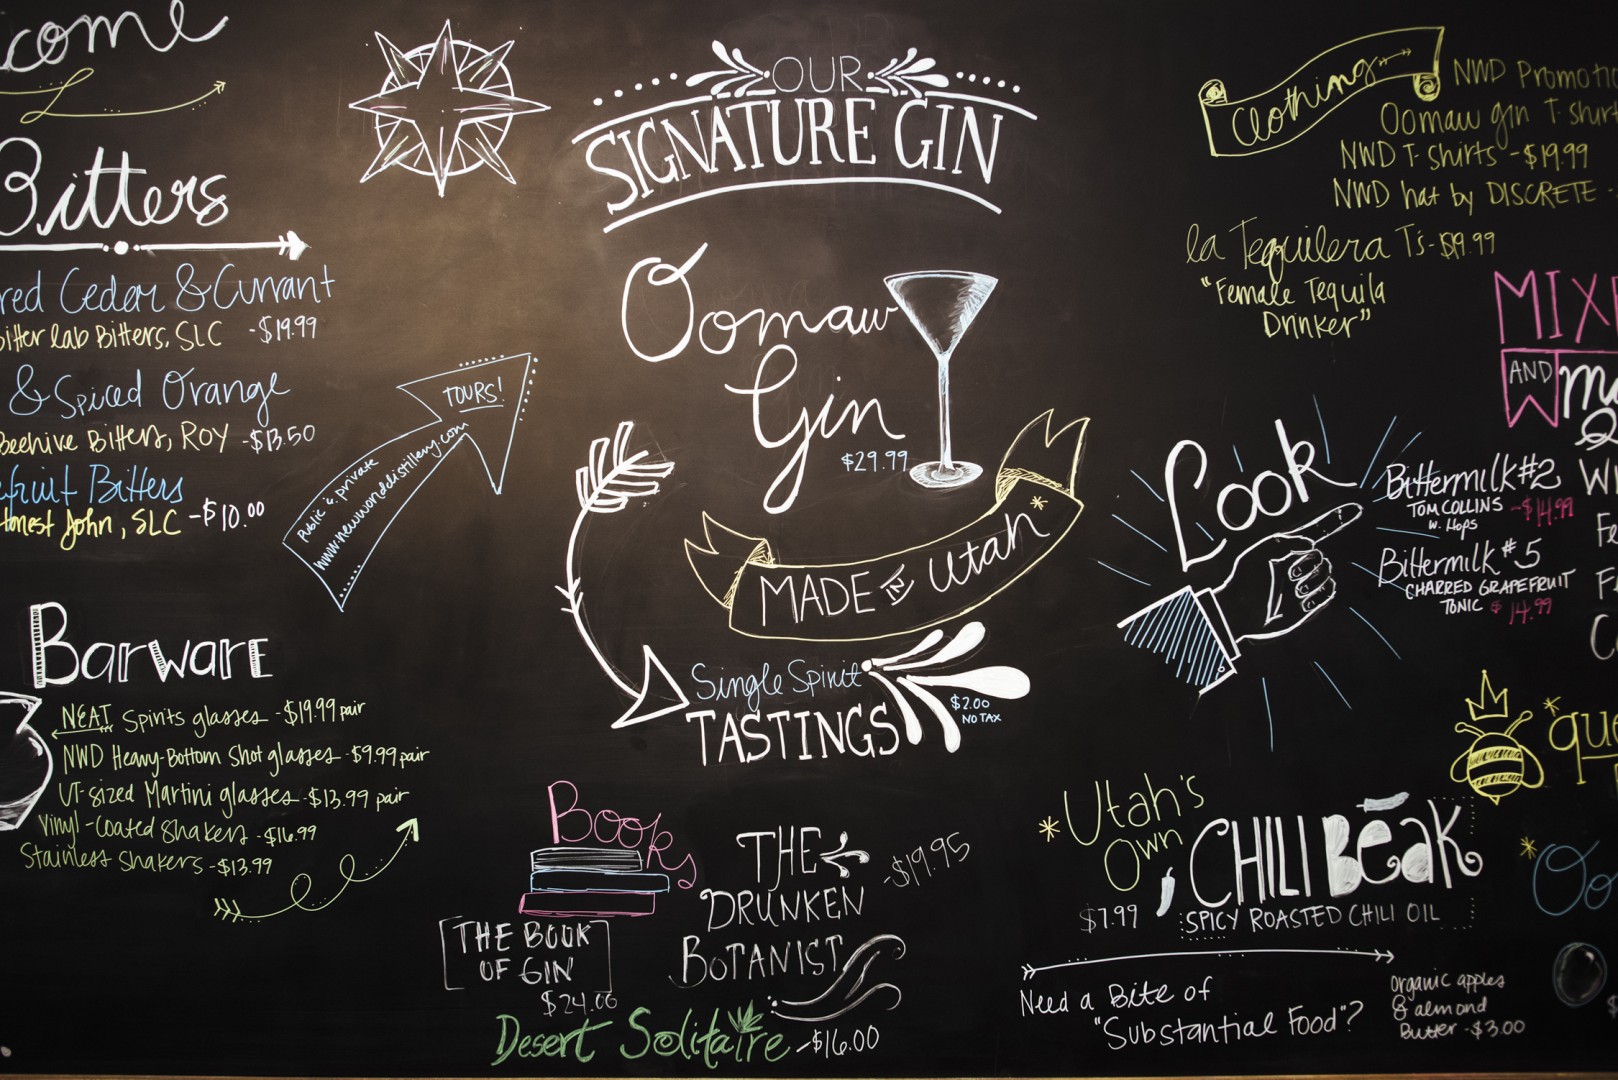 come
Bitters
red Cedar & Currant
Bitter lab Bitters, SLC -$19.99
& Spiced Orange
Beehive Bitters, ROY -$13.50
efruit Bitters
Honest John, SLC -$10.00
TOURS!
Public & private
www.newworlddistillery.com
Barware
NEAT Spirits glasses -$19.99 pair
NWD Heavy-Bottom Shot glasses -$9.99 pair
UT-sized Martini glasses -$13.99 pair
Vinyl-Coated Shakers -$16.99
Stainless Shakers -$13.99
OUR
SIGNATURE GIN
Oomaw
Gin
$29.99
MADE IN Utah
Single Spirit
TASTINGS
$2.00
NO TAX
Books
THE BOOK
OF GIN
$24.00
THE
DRUNKEN
BOTANIST
-$19.95
Desert Solitaire -$16.00
Clothing
NWD Promoti
Oomaw gin T-shirt
NWD T-shirts -$19.99
NWD hat by DISCRETE -
la Tequilera T's -$19.99
"Female Tequila
Drinker"
MIXE
AND
Look
Bittermilk #2
TOM COLLINS -$14.99
w. Hops
Bittermilk #5
CHARRED GRAPEFRUIT
TONIC $14.99
que
Utah's
Own
CHILI BEAK
$7.99
SPICY ROASTED CHILI OIL
Oo
Need a Bite of
"Substantial Food"?
Organic apples
& almond
Butter -$3.00